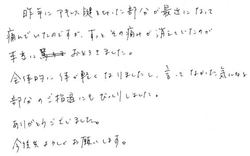 昨年にアキレス腱を切った部分が最近になって
痛んでいたのですが、すっとその痛みが消えていたが
本当におどろきました。
全体的に体も軽くなりましたし、言ってなかった気になる
部分のご指適にもびっくりしました。
ありがとうございました。
今後もよろしくお願いします。